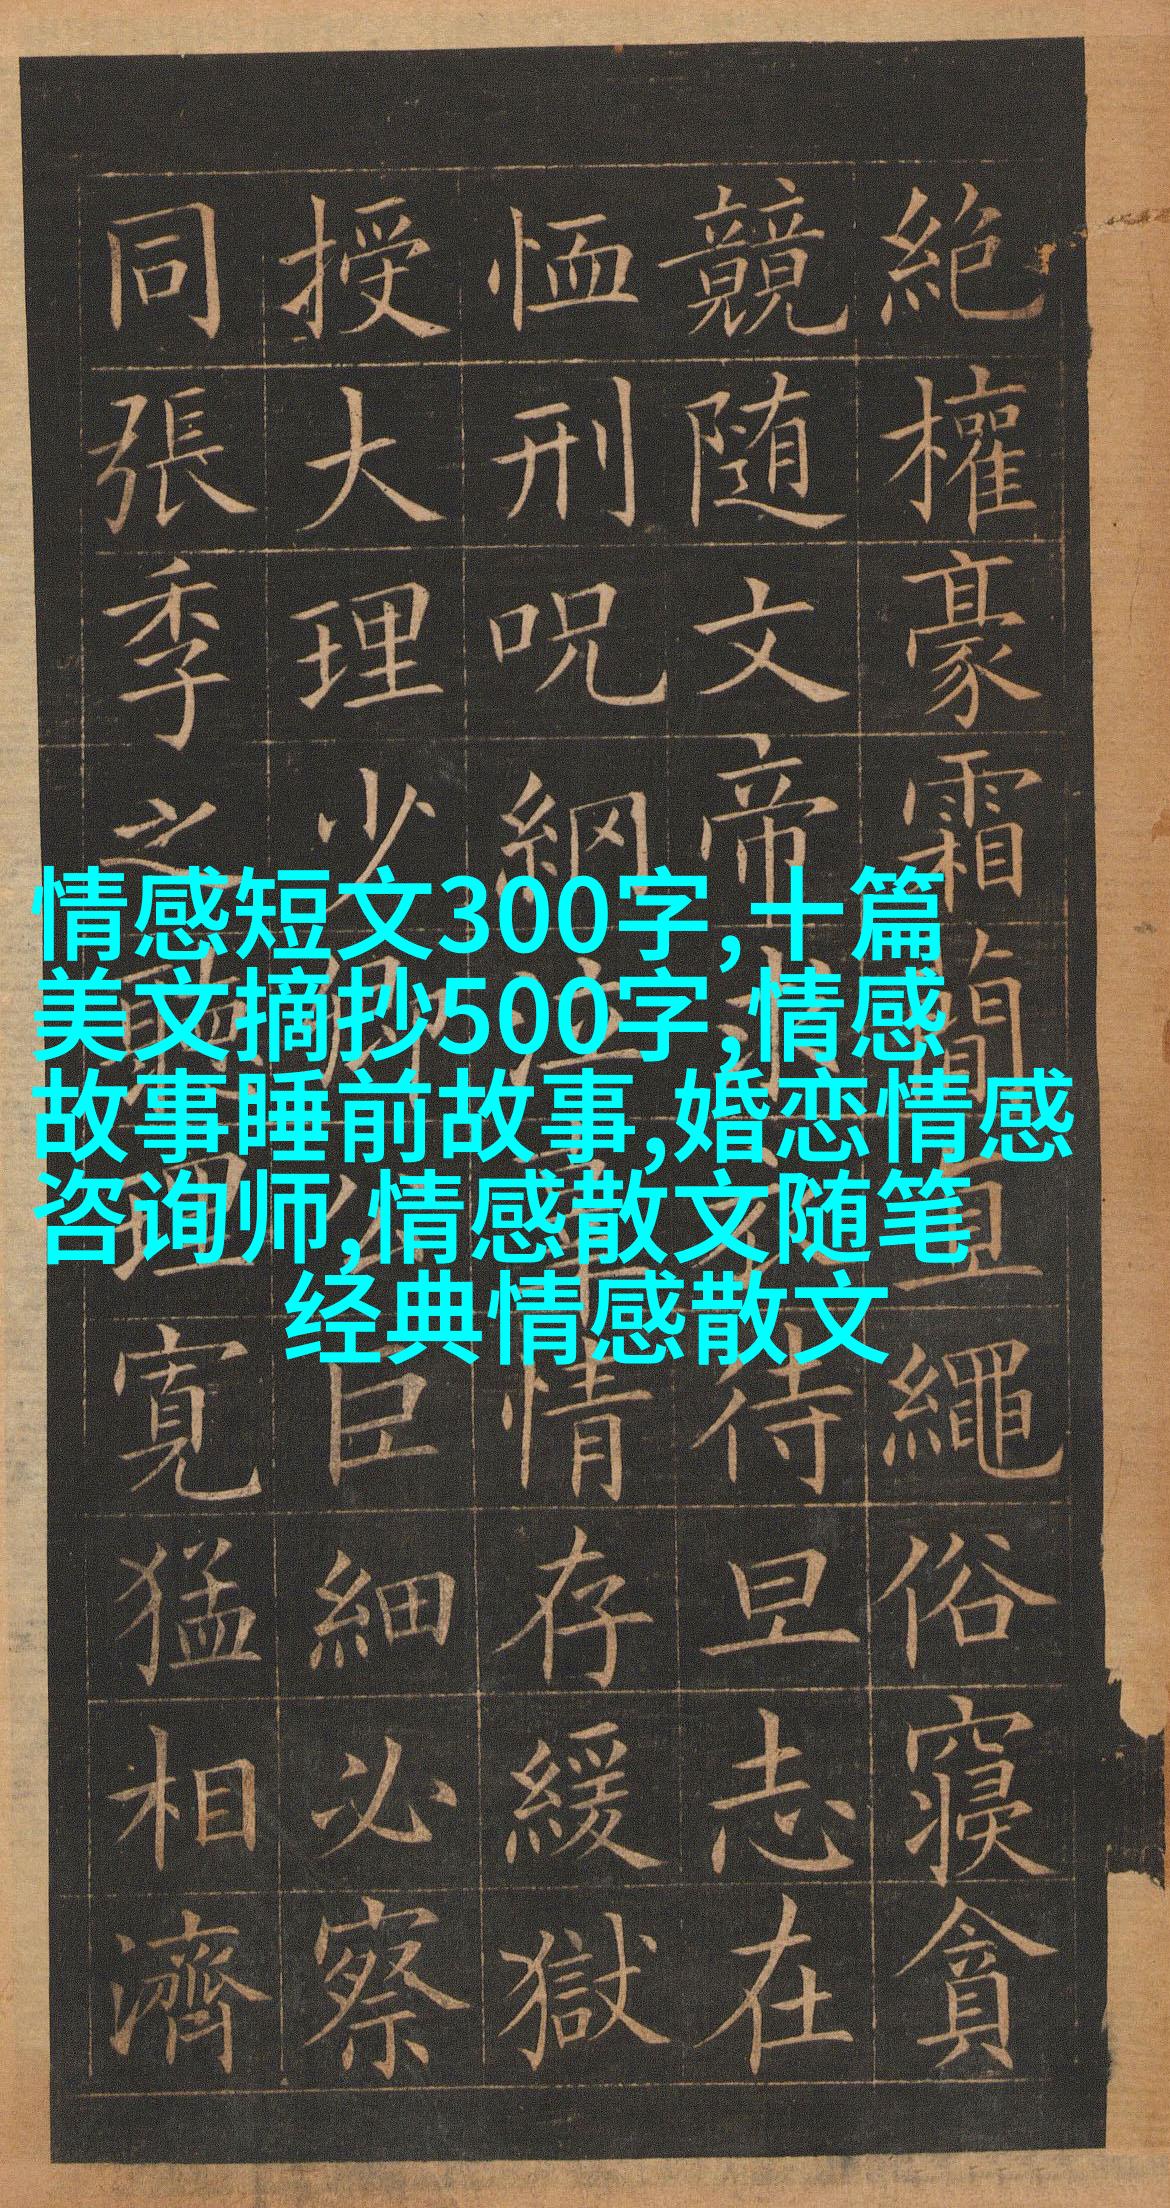 絶權豪霜簡直繩俗寢貪
競随文帝求衣待旦志在
恤刑呪網泣辜情存緩獄
授大理少卿公巨細必察
同張季之聽理寛猛相濟
情感短文300字,十篇
美文摘抄500字,情感
故事睡前故事,婚恋情感
咨询师,情感散文随笔
经典情感散文